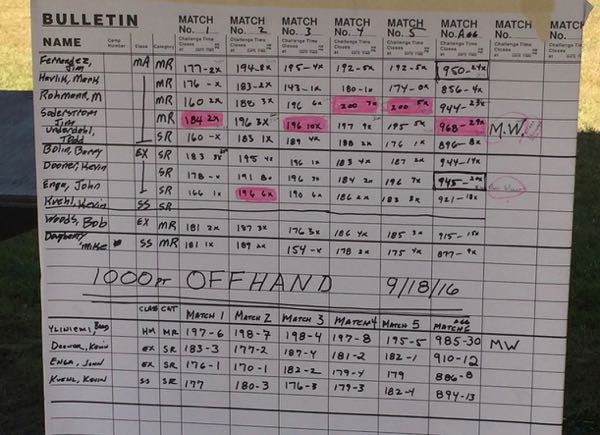 BULLETIN MATCH No. 1 MATCH No. 2 MATCH No. 3 MATCH No. 4 MATCH No. 5 MATCH No. AGG MATCH No. MATCH No.
NAME Class Category Challenge Time Closes Challenge Time Closes Challenge Time Closes Challenge Time Closes Challenge Time Closes
Fernandez, Jim MA MR 177-2x 194-8x 195-4x 192-5x 192-5x 950-24x
Havlik, Mark MR 176-x 183-2x 143-1x 180-1x 174-0x 856-4x
Rohmann, M MR 160 2x 188 3x 196 6x 200 7x 200 5x 944-23x
Soderstrom Jim MR 184 2x 196 3x 196 10x 197 9x 195 5x 968-29x M.W.
Underdahl, Todd SR 160-x 183 1x 189 4x 188 2x 176 1x 896-8x
Bolin, Barry EX SR 183 3x 195 4x 196 1x 183 4x 187 2x 944-14x
Dooner, Kevin SR 178-x 191 8x 196 7x 184 2x 196 7x 945-
Enga, John SR 166 1x 196 6x 190 6x 186 2x 183 3x 921-18x
Kuehl, Kevin SS SR
Woods, Bob EX MR 181 2x 187 3x 176 3x 186 4x 185 3x 915-15x
Dougherty Mike SS MR 181 1x 189 2x 154-x 178 2x 175 4x 877-9x
1000 PT OFFHAND 9/18/16
CLASS CAT MATCH 1 MATCH 2 MATCH 3 MATCH 4 MATCH 5 AGG MATCH 6
YLINIEMI, Brad HM MR 197-6 198-7 198-4 197-8 195-5 985-30 MW
Dooner, Kevin EX SR 183-3 177-2 187-4 181-2 182-1 910-12
ENGA, JOHN EX SR 176-1 170-1 182-2 179-4 179 886-8
KUEHL, KEVIN SS SR 177 180-3 176-3 179-3 182-4 894-13